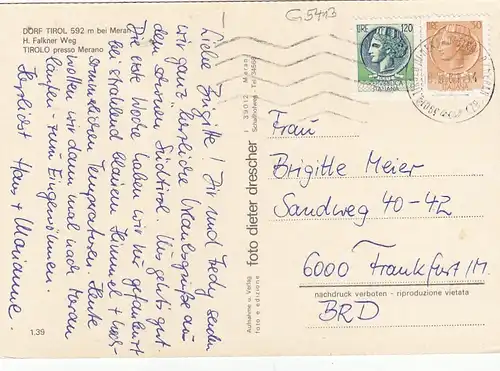 G5413
DORF TIROL 592 m bei Meran
H. Falkner Weg
TIROLO presso Merano
Liebe Brigitte! Dir und Fredy senden
wir ganz herzliche Urlaubsgrüße aus
dem schönen Südtirol. Uns geht's gut.
Die erste Woche haben wir hier gefaulenzt
bei strahlend blauem Himmel +
sommerlichen Temperaturen. Heute
wollen wir dann mal nach Meran
laufen - zum Eingewöhnen.
Herzlichst Hans + Marianne.
1,39
Aufnahme u. Verlag
foto e edizione
foto dieter drescher
I 39012 Meran
LIRE 120
REPUBBLICA
ITALIANA
Frau
Brigitte Meier
Sandweg 40-42
6000 Frankfurt/M.
nachdruck verboten - riproduzione vietata
BRD